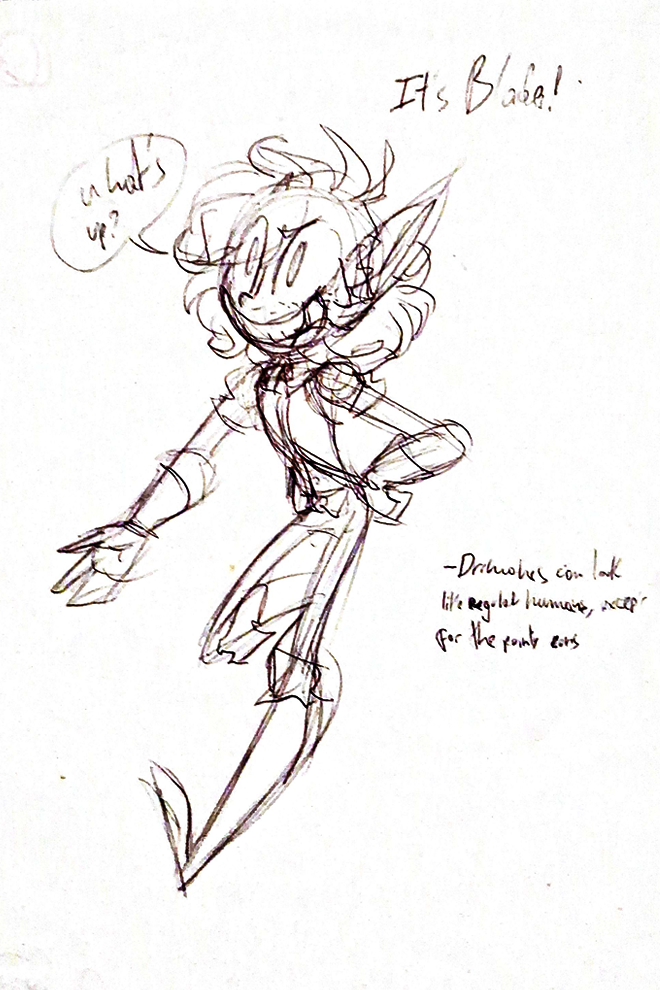 It's Blake!
what's
up?
-Drimohes can look
like regular humans, except
for the point ears